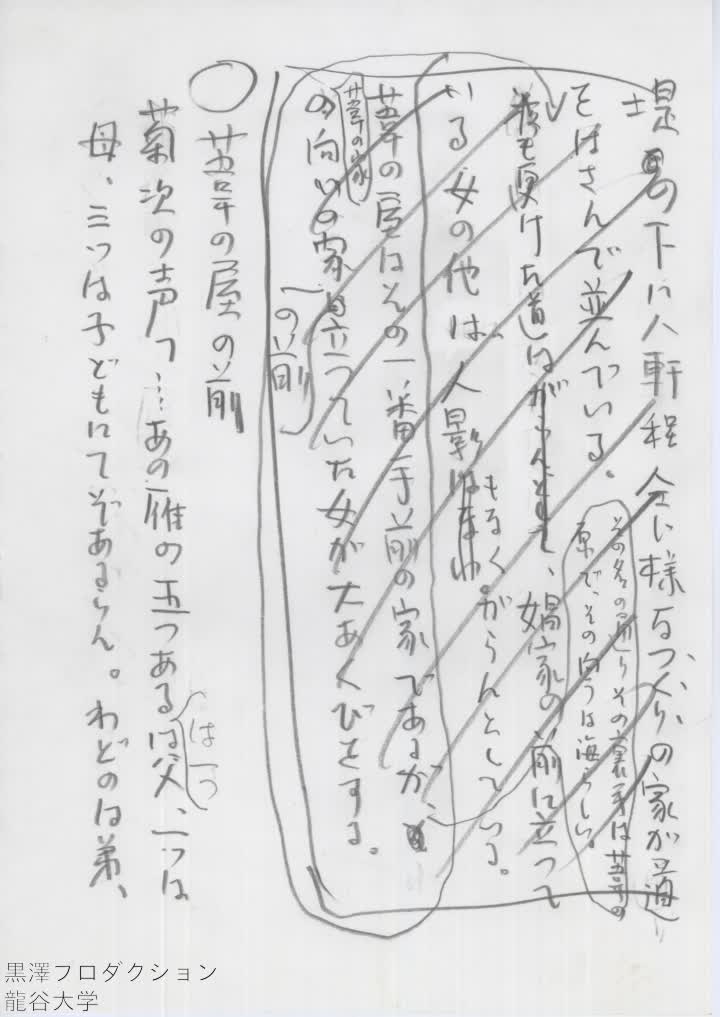 堤の下に八軒程全じ様なつくりの家が通り
をはさんで並んでいる。
その名の通りその裏手は葦の
原で、その向うは海らしい。
夜も更けた道はがらんとして、娼家の前に立って
いる女の他は人影はまばら
もなく。がらんとしている。
葦の屋はその一番手前の家であるが、
葦の家
の向いの家
の前
目立っていた女が大あくびをする。
○ 葦の屋の前
菊次の声「…あの雁の五つあるは父、一つは
は一つ
母、三つは子どもにてぞあるらん。わどのは弟、
黒澤プロダクション
龍谷大学